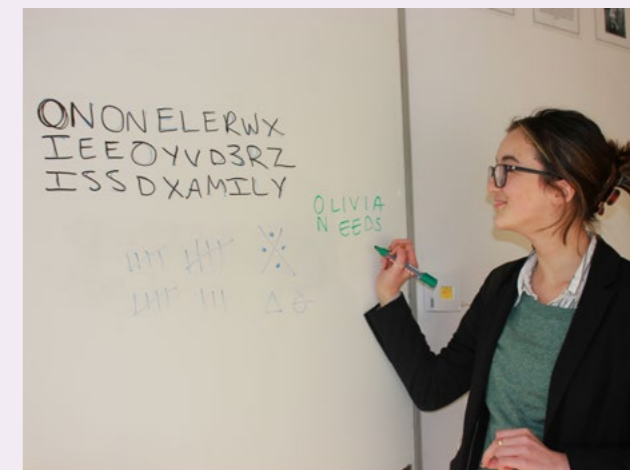 ONONELERWX
IEEOYVD3RZ
ISSDXAMILY
OLIVIA
NEEDS